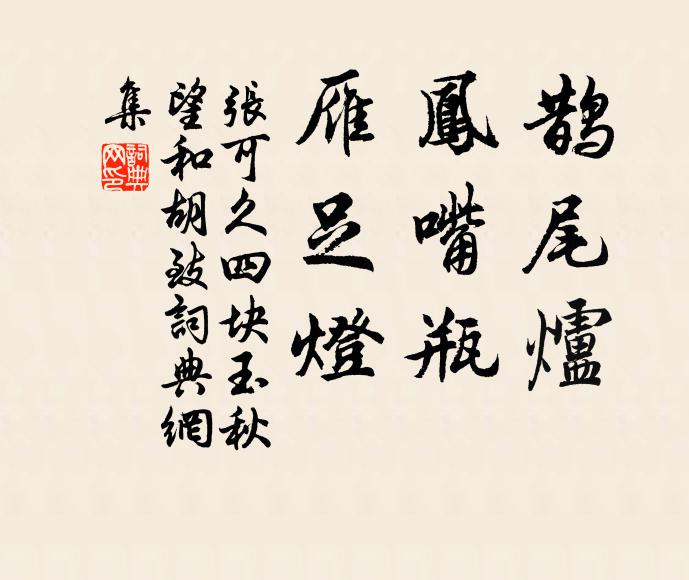 鵲尾爐
鳳嘴瓶
雁足燈
張可久四块玉秋
望和胡致詞典網
集
詞典网印